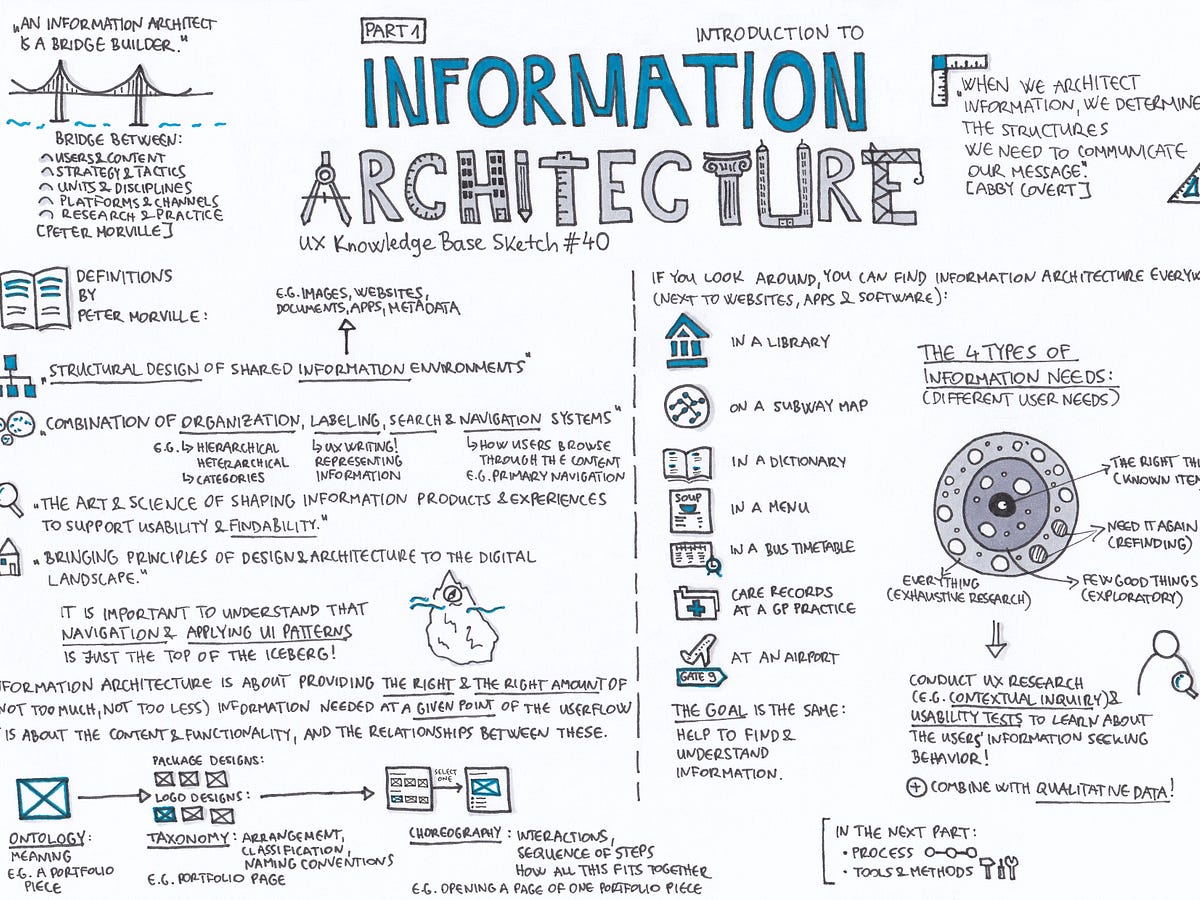 „AN INFORMATION ARCHITECT
IS A BRIDGE BUILDER."
BRIDGE BETWEEN:
USERS & CONTENT
STRATEGY & TACTICS
UNITS & DISCIPLINES
PLATFORMS & CHANNELS
RESEARCH & PRACTICE
[PETER MORVILLE]
PART 1
INTRODUCTION TO
INFORMATION
ARCHITECTURE
UX Knowledge Base Sketch #40
„WHEN WE ARCHITECT
INFORMATION, WE DETERMINE
THE STRUCTURES
WE NEED TO COMMUNICATE
OUR MESSAGE."
[ABBY COVERT]
DEFINITIONS
BY
PETER MORVILLE:
E.G. IMAGES, WEBSITES,
DOCUMENTS, APPS, METADATA
„STRUCTURAL DESIGN OF SHARED INFORMATION ENVIRONMENTS"
„COMBINATION OF ORGANIZATION, LABELING, SEARCH & NAVIGATION SYSTEMS"
E.G. ↳ HIERARCHICAL
HETERARCHICAL
↳ CATEGORIES
↳ UX WRITING!
REPRESENTING
INFORMATION
↳ HOW USERS BROWSE
THROUGH THE CONTENT
E.G. PRIMARY NAVIGATION
„THE ART & SCIENCE OF SHAPING INFORMATION PRODUCTS & EXPERIENCES
TO SUPPORT USABILITY & FINDABILITY."
„BRINGING PRINCIPLES OF DESIGN & ARCHITECTURE TO THE DIGITAL
LANDSCAPE."
IT IS IMPORTANT TO UNDERSTAND THAT
NAVIGATION & APPLYING UI PATTERNS
IS JUST THE TOP OF THE ICEBERG!
NFORMATION ARCHITECTURE IS ABOUT PROVIDING THE RIGHT & THE RIGHT AMOUNT OF
NOT TOO MUCH, NOT TOO LESS) INFORMATION NEEDED AT A GIVEN POINT OF THE USERFLOW
IS ABOUT THE CONTENT & FUNCTIONALITY, AND THE RELATIONSHIPS BETWEEN THESE.
PACKAGE DESIGNS:
LOGO DESIGNS:
SELECT
ONE
ONTOLOGY:
MEANING
E.G. A PORTFOLIO
PIECE
TAXONOMY: ARRANGEMENT,
CLASSIFICATION,
NAMING CONVENTIONS
E.G. PORTFOLIO PAGE
CHOREOGRAPHY: INTERACTIONS,
SEQUENCE OF STEPS
HOW ALL THIS FITS TOGETHER
E.G. OPENING A PAGE OF ONE PORTFOLIO PIECE
IF YOU LOOK AROUND, YOU CAN FIND INFORMATION ARCHITECTURE EVERYW
(NEXT TO WEBSITES, APPS & SOFTWARE):
IN A LIBRARY
ON A SUBWAY MAP
IN A DICTIONARY
SOUP
IN A MENU
IN A BUS TIMETABLE
CARE RECORDS
AT A GP PRACTICE
AT AN AIRPORT
GATE 9
THE GOAL IS THE SAME:
HELP TO FIND &
UNDERSTAND
INFORMATION.
THE 4 TYPES OF
INFORMATION NEEDS:
(DIFFERENT USER NEEDS)
THE RIGHT THI
(KNOWN ITEM
NEED IT AGAIN
(REFINDING)
FEW GOOD THINGS
(EXPLORATORY)
EVERYTHING
(EXHAUSTIVE RESEARCH)
CONDUCT UX RESEARCH
(E.G. CONTEXTUAL INQUIRY) &
USABILITY TESTS TO LEARN ABOUT
THE USERS' INFORMATION SEEKING
BEHAVIOR!
+ COMBINE WITH QUALITATIVE DATA!
IN THE NEXT PART:
• PROCESS
• TOOLS & METHODS